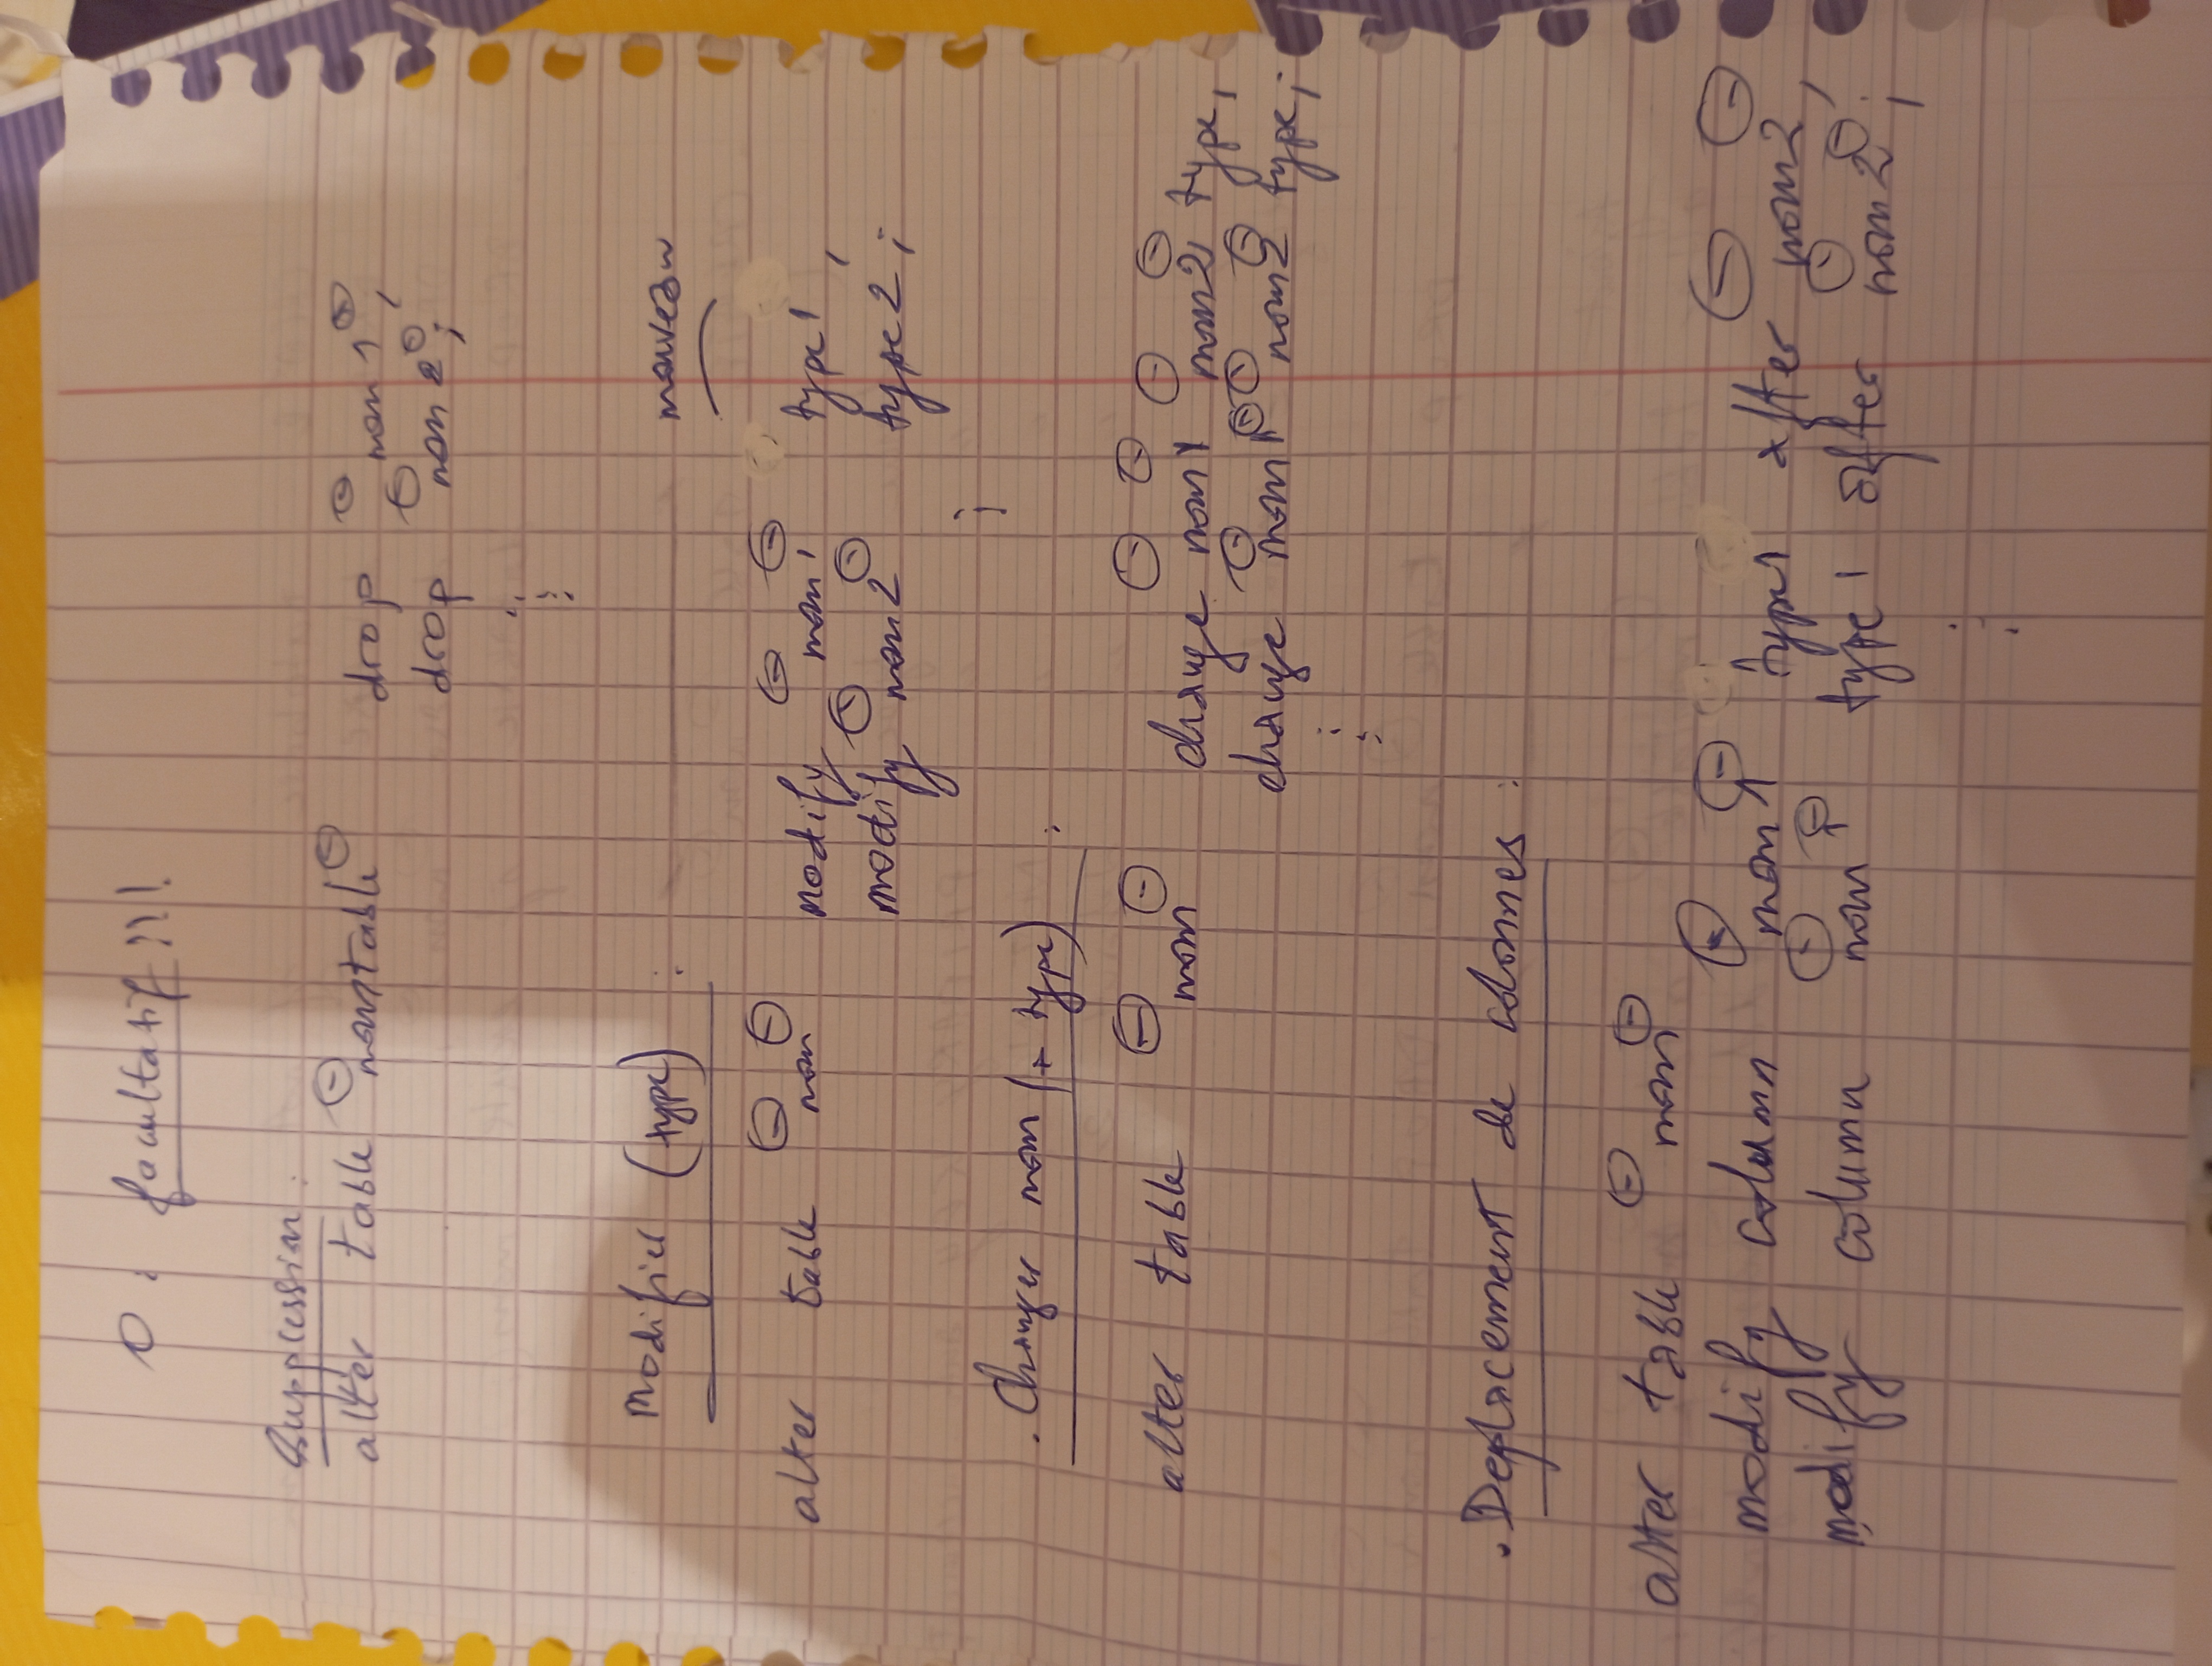 O : facultatif !!!
Suppression :
alter table ⊖nomtable⊖ drop ⊖nom1⊖,
drop ⊖nom2⊖;
Modifier (type) : nouveau
alter table ⊖nom⊖ modify ⊖nom1⊖ type1,
modify ⊖nom2⊖ type2;
;
. Changer nom (+ type) :
alter table ⊖nom⊖ change ⊖nom1⊖ ⊖nom2⊖ type,
change ⊖nom1⊖ ⊖nom2⊖ type;
. Deplacement de colonnes :
alter table ⊖nom⊖
modify column ⊖nom1⊖ type1 after ⊖nom2⊖,
modify column ⊖nom1⊖ type1 after ⊖nom2⊖;